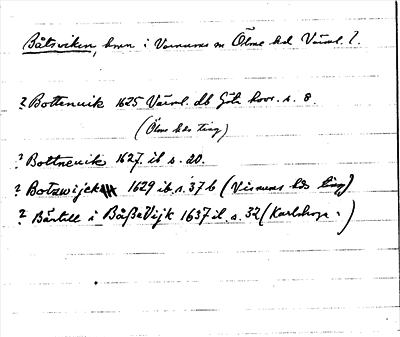 Båtsviken, hmn i Varnums sn Ölme hd Värml. l.
? Bottenvik 1625 Värml. db Göta hovr. s. 8.
(Ölme hds ting)
? Bottnevik 1627 ib s. 20.
? Botzwijck 1629 ib. s. 37 b (Visnums hds ting)
? Bärtill i BåßaVijk 1637 ib. s. 32 (Karlskoga)